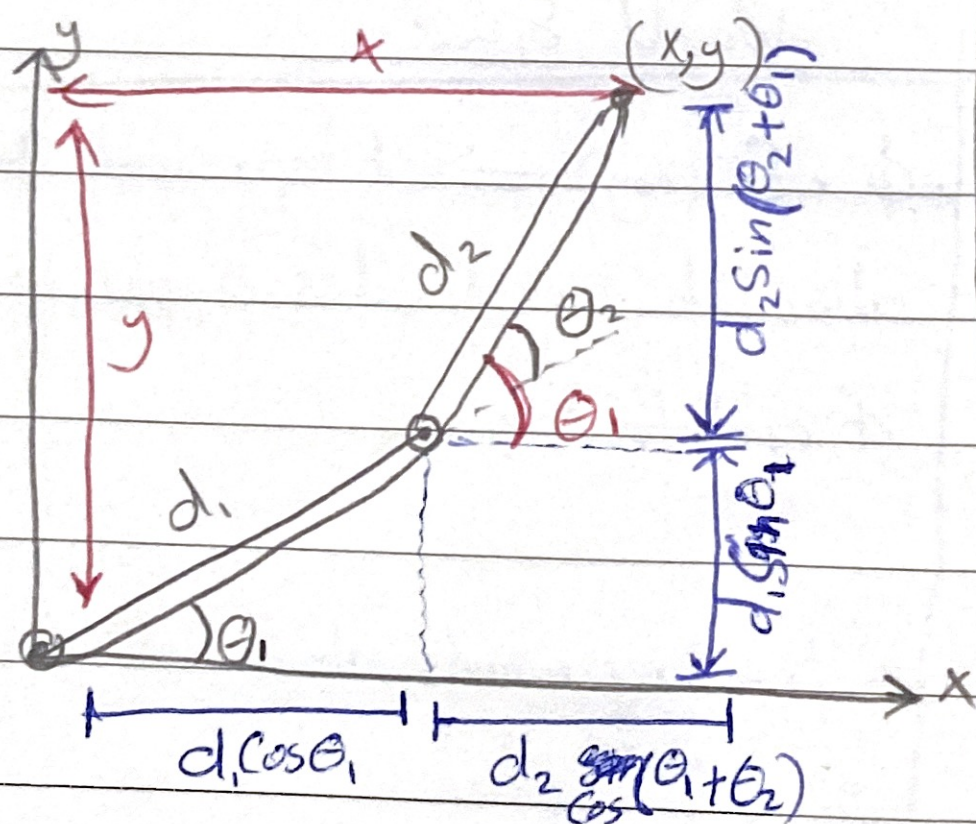 y
x
(x,y)
d₂ Sin(θ₂+θ₁)
d₂
θ₂
y
θ₁
d₁
d₁ Sinθ₁
θ₁
x
d₁ Cosθ₁
d₂ Cos(θ₁+θ₂)